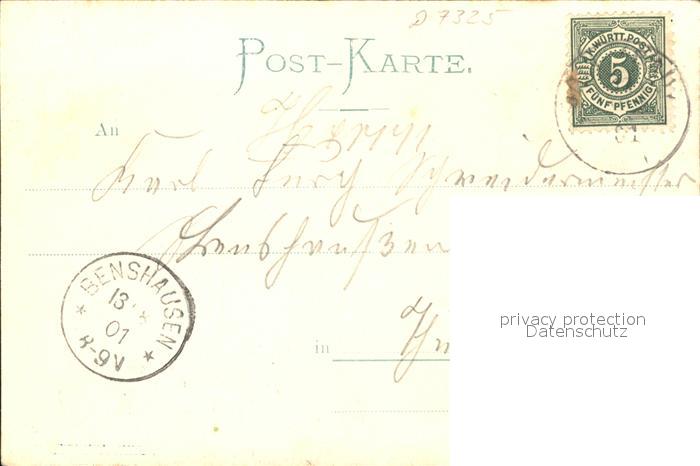 D 7325
POST-KARTE.
K. WÜRTT. POST
5
FÜNF PFENNIG
01
An
Herrn
Karl Schneidermeister
Benshausen
in Thü
BENSHAUSEN
13
01
8-9V
privacy protection
Datenschutz